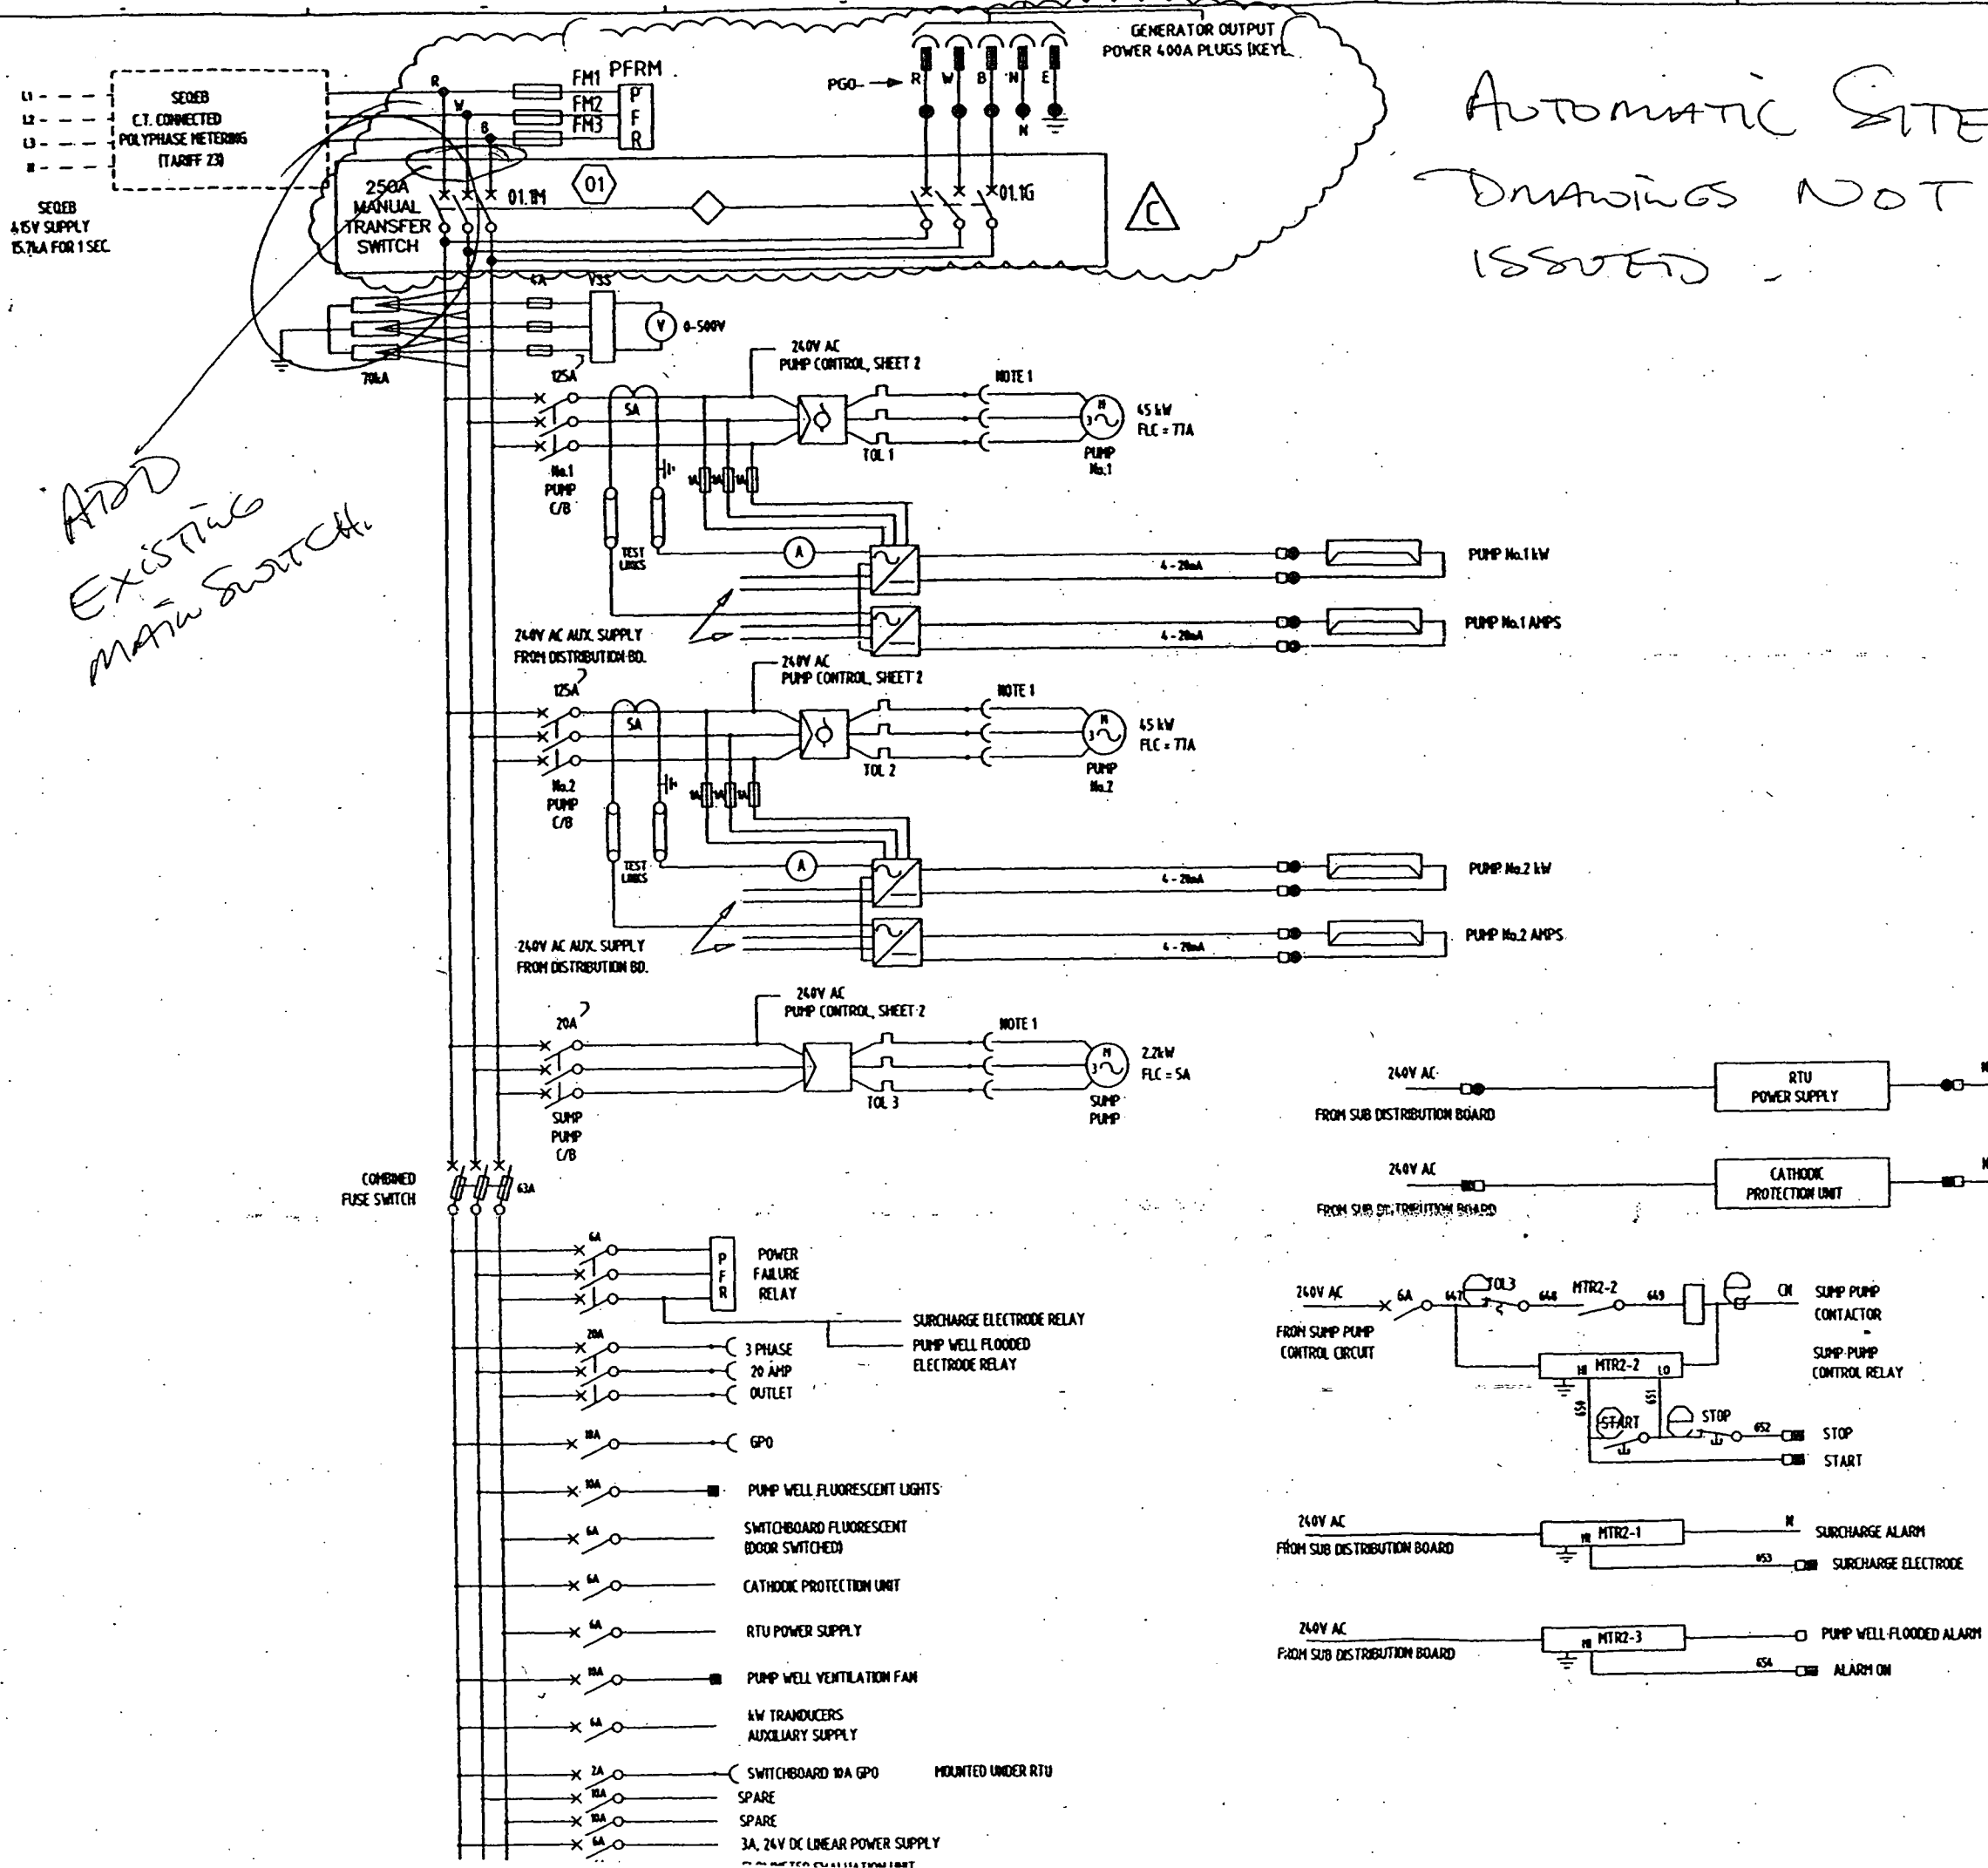 GENERATOR OUTPUT
POWER 400A PLUGS (KEYE
PGO
R W B N E
N
AUTOMATIC SITE
DRAWINGS NOT
ISSUED -
L1
L2
L3
N
SEQEB
C.T. CONNECTED
POLYPHASE METERING
(TARIFF 23)
SEQEB
415V SUPPLY
15.7kA FOR 1 SEC.
R
W
B
FM1
FM2
FM3
PFRM
P
F
R
250A
MANUAL
TRANSFER
SWITCH
01.1M
01
01.1G
C
4A
VSS
V
0-500V
70kA
ADD
EXISTING
MAIN SWITCH.
240V AC
PUMP CONTROL, SHEET 2
125A
5A
NOTE 1
M
3
45 kW
FLC = 77A
TOL 1
PUMP
No.1
No.1
PUMP
C/B
1A 1A 1A
TEST
LINKS
A
4 - 20mA
PUMP No.1 kW
4 - 20mA
PUMP No.1 AMPS
240V AC AUX. SUPPLY
FROM DISTRIBUTION BD.
240V AC
PUMP CONTROL, SHEET 2
125A
5A
NOTE 1
M
3
45 kW
FLC = 77A
TOL 2
PUMP
No.2
No.2
PUMP
C/B
1A 1A 1A
TEST
LINKS
A
4 - 20mA
PUMP No.2 kW
4 - 20mA
PUMP No.2 AMPS
240V AC AUX. SUPPLY
FROM DISTRIBUTION BD.
240V AC
PUMP CONTROL, SHEET 2
20A
NOTE 1
M
3
2.2kW
FLC = 5A
TOL 3
SUMP
PUMP
SUMP
PUMP
C/B
COMBINED
FUSE SWITCH
63A
6A
P
F
R
POWER
FAILURE
RELAY
SURCHARGE ELECTRODE RELAY
PUMP WELL FLOODED
ELECTRODE RELAY
20A
3 PHASE
20 AMP
OUTLET
10A
GPO
10A
PUMP WELL FLUORESCENT LIGHTS
6A
SWITCHBOARD FLUORESCENT
(DOOR SWITCHED)
6A
CATHODIC PROTECTION UNIT
6A
RTU POWER SUPPLY
10A
PUMP WELL VENTILATION FAN
6A
kW TRANDUCERS
AUXILIARY SUPPLY
2A
SWITCHBOARD 10A GPO MOUNTED UNDER RTU
10A
SPARE
10A
SPARE
6A
3A, 24V DC LINEAR POWER SUPPLY
240V AC
FROM SUB DISTRIBUTION BOARD
RTU
POWER SUPPLY
240V AC
FROM SUB DISTRIBUTION BOARD
CATHODIC
PROTECTION UNIT
240V AC
6A
647
TOL3
648
MTR2-2
649
CN
SUMP PUMP
CONTACTOR
FROM SUMP PUMP
CONTROL CIRCUIT
HI MTR2-2 LO
SUMP PUMP
CONTROL RELAY
650
651
START
STOP
652
STOP
START
240V AC
FROM SUB DISTRIBUTION BOARD
HI MTR2-1
N
SURCHARGE ALARM
653
SURCHARGE ELECTRODE
240V AC
FROM SUB DISTRIBUTION BOARD
HI MTR2-3
PUMP WELL FLOODED ALARM
654
ALARM ON